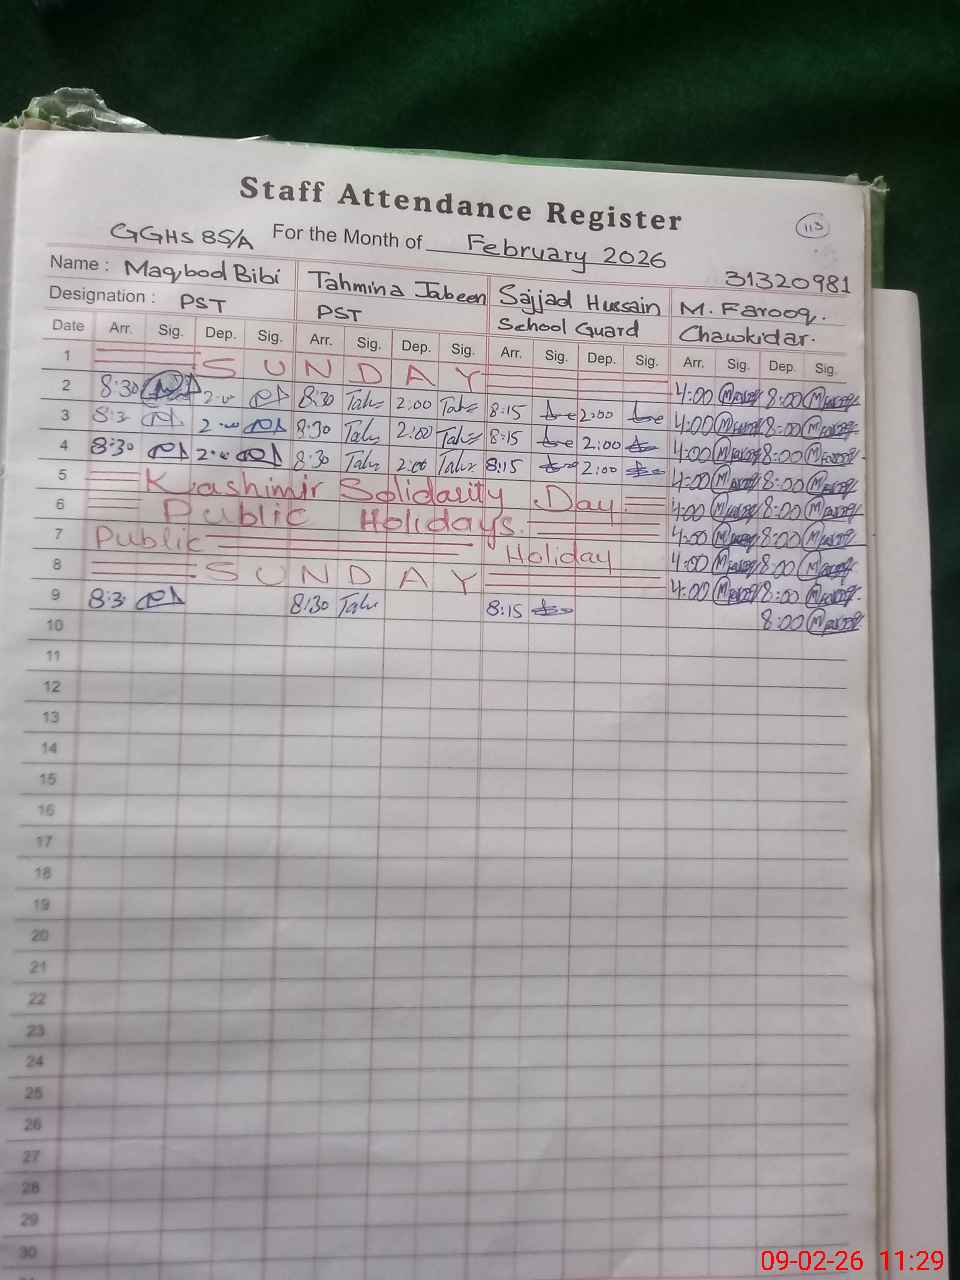 Staff Attendance Register
113
GGHS 85/A For the Month of February 2026
31320981
Name : Maqbool Bibi Tahmina Jabeen Sajjad Hussain M. Farooq.
Designation : PST PST School Guard Chawkidar.
Date Arr. Sig. Dep. Sig. Arr. Sig. Dep. Sig. Arr. Sig. Dep. Sig. Arr. Sig. Dep. Sig.
1 SUNDAY
2 8:30 2:00 8:30 2:00 8:15 2:00 4:00 8:00
3 8:3 2:00 8:30 2:00 8:15 2:00 4:00 8:00
4 8:30 2:00 8:30 2:00 8:15 2:00 4:00 8:00
5 Kashimir Solidarity Day 4:00 8:00
6 Public Holidays. 4:00 8:00
7 Public Holiday 4:00 8:00
8 SUNDAY 4:00 8:00
9 8:3 8:30 8:15 4:00 8:00
10 8:00
11
12
13
14
15
16
17
18
19
20
21
22
23
24
25
26
27
28
29
30
09-02-26 11:29